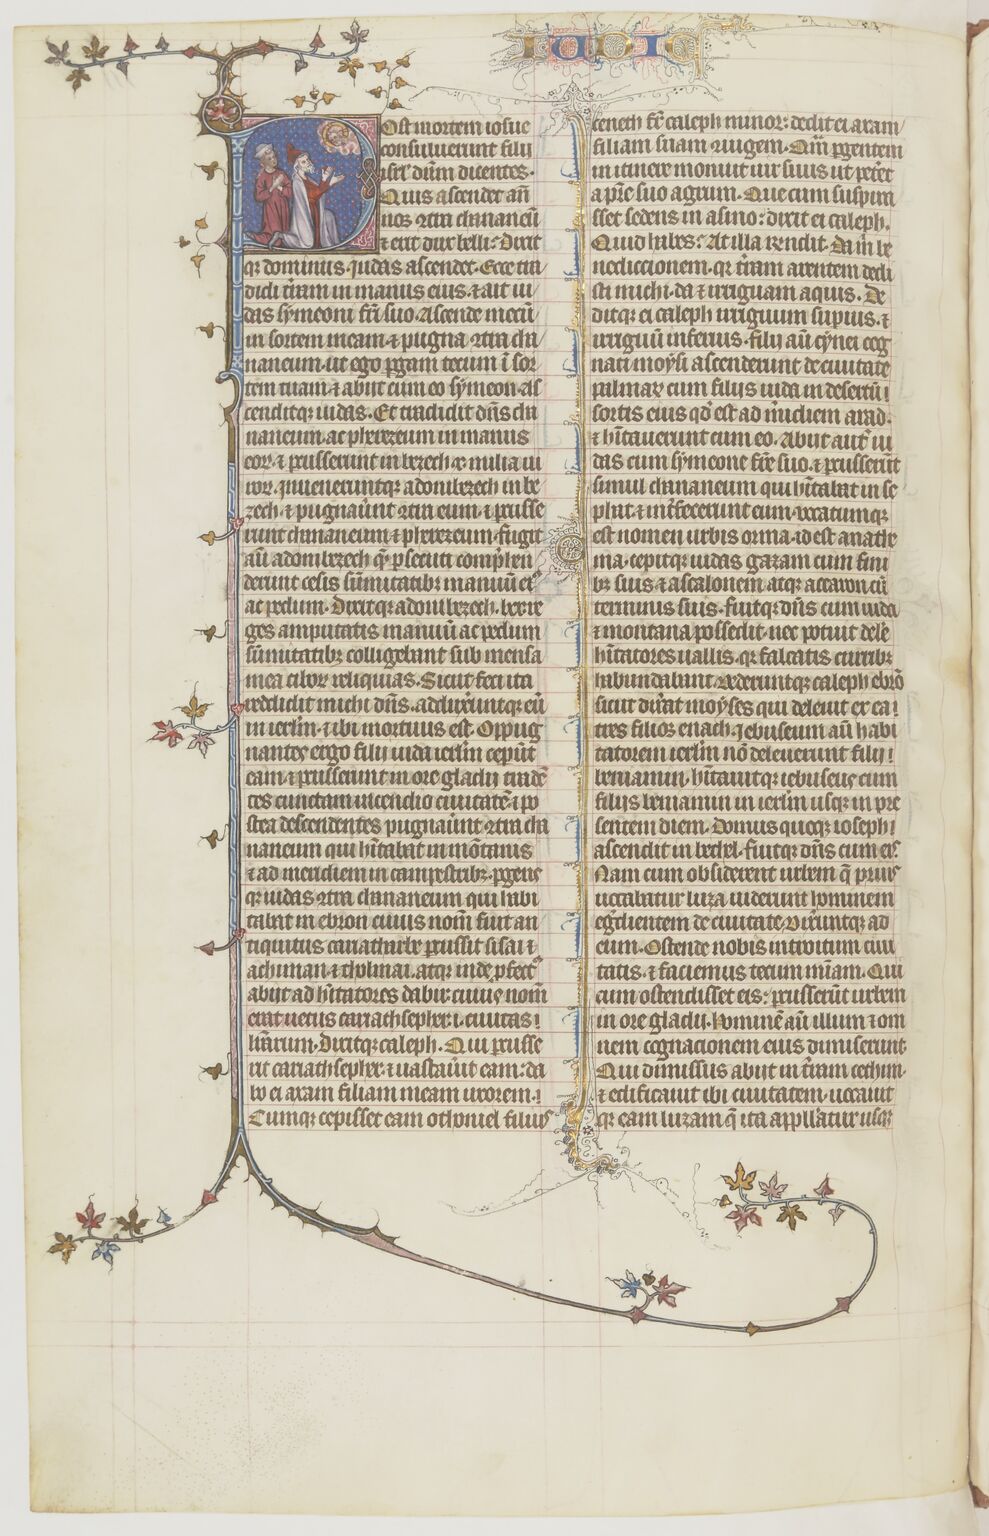 Post mortem iosue
consuluerunt filii
isrl' dn̄m dicentes.
Quis ascendet an̄
nos ꝯtra chananeū
⁊ erit dux belli: Dixit
qꝫ dominus. Iudas ascendet. Ecce tra
didi t̄ram in manus eius. ⁊ ait iu
das symeoni fr̄i suo. Ascende mecū
in sortem meam ⁊ pugna ꝯtra cha
naneum. ut ego ꝑgam tecum ī sor
tem tuam ⁊ abiit cum eo symeon. As
cenditqꝫ iudas. Et tradidit dn̄s cha
naneum. ac pherezeum in manus
eoꝝ ⁊ ꝑcusserunt in bezech x milia ui
roꝝ. Inueneruntqꝫ adonibezech in be
zech ⁊ pugnauūt ꝯtra eum ⁊ ꝑcusse
runt chananeum ⁊ pherezeum. fugit
aū adonibezech q̄ꝫ ꝑsecuti comp̄hen
derunt cesis sūmitatibꝫ manuū ei9
ac pedum. Dixitqꝫ adonibezech. lxx re
ges amputatis manuū ac pedum
sūmitatibꝫ colligebant sub mensa
mea ciboꝝ reliquias. Sicut feci ita
reddidit michi dn̄s. adduxeruntqꝫ eū
in ierl̄m ⁊ ibi mortuus est. Oppug
nantes ergo filii iuda ierl̄m cepūt
eam ⁊ ꝑcusserunt in ore gladii traden
tes cunctam incendio ciuitatē ⁊ po
stea descendentes pugnauūt ꝯtra cha
naneum qui hītabat in mōtanis
⁊ ad meridiem in campestribꝫ. ꝑgens
qꝫ iudas ꝯtra chananeum qui habi
tabat in ebron cuius nom̄ fuit an
tiquitus cariatharbe ꝑcussit sisai ⁊
achiman ⁊ tholmai. atqꝫ inde ꝓfect9
abiit ad hītatores dabir cuius nom̄
erat uetus cariathsepher. i. ciuitas
litterarum. Dixitqꝫ caleph. Qui ꝑcusse
rit cariathsepher ⁊ uastauūt eam: da
bo ei axam filiam meam uxorem.
Cumqꝫ cepisset eam othoniel filius
ceneth fr̄ caleph minor: dedit ei axam
filiam suam ꝯiugem. Qm̄ ꝑgentem
in itinere monuit uir suus ut peteret
a pr̄e suo agrum. Que cum suspiras
sset sedens in asino: dixit ei caleph.
Quid habes? At illa rn̄dit. Da m̄ be
nediccionem. qꝛ t̄ram arentem dedi
sti michi. da ⁊ irriguam aquis. De
ditqꝫ ei caleph irriguum supius. ⁊
irriguū inferius. filii aū cynei cog
nati moysi ascenderunt de ciuitate
palmaꝝ cum filiis iuda in desertū
sortis eius qd̄ est ad m̄idiem arad.
⁊ hītauerunt cum eo. Abiit autē iu
das cum symeone fr̄e suo. ⁊ ꝑcusserūt
simul chananeum qui hītabat in se
phat ⁊ int̄fecerunt eum. uocatumqꝫ
est nomen urbis orma. id est anathe
ma. cepitqꝫ iudas gazam cum fini
bꝫ suis ⁊ ascalonem atqꝫ accaron cū
terminis suis. fuitqꝫ dn̄s cum iuda
⁊ montana possedit. nec potuit delē
hītatores uallis. qꝛ falcatis curribꝫ
habundabant. dederuntqꝫ caleph ebrō
sicut dix̄at moyses qui deleuit ex ea
tres filios enach. Iebuseum aū habi
tatorem ierl̄m nō deleuerunt filii
beniamin. hītauitqꝫ iebuseus cum
filiis beniamin in ierl̄m usqꝫ in pre
sentem diem. Domus quoqꝫ ioseph
ascendit in bethel. fuitqꝫ dn̄s cum eis.
Nam cum obsiderent urbem q̄ prius
uocabatur luza uiderunt hominem
egredientem de ciuitate. Dixeruntqꝫ ad
eum. Ostende nobis introitum ciui
tatis. ⁊ faciemus tecum mīam. Qui
cum ostendisset eis: ꝑcusserūt urbem
in ore gladii. hominē aū illum ⁊ om
nem cognacionem eius dimiserunt.
Qui dimissus abiit in t̄ram cethim.
⁊ edificauit ibi ciuitatem. uocauit
qꝫ eam luzam q̄ ita appellatur usqꝫ